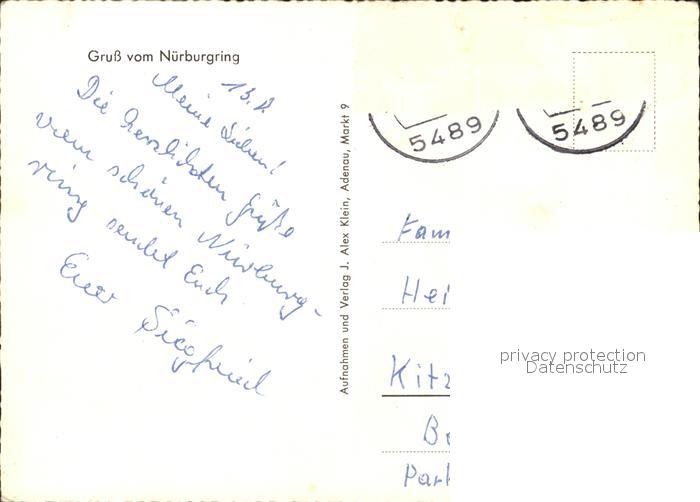 Gruß vom Nürburgring
13.8.
Meine Lieben!
Die herzlichsten Grüße
vom schönen Nürburg-
ring sendet Euch
Euer Siegfried
Aufnahmen und Verlag J. Alex Klein, Adenau, Markt 9
5489
5489
Fam
Hei
Kitz
Be
Park
privacy protection
Datenschutz